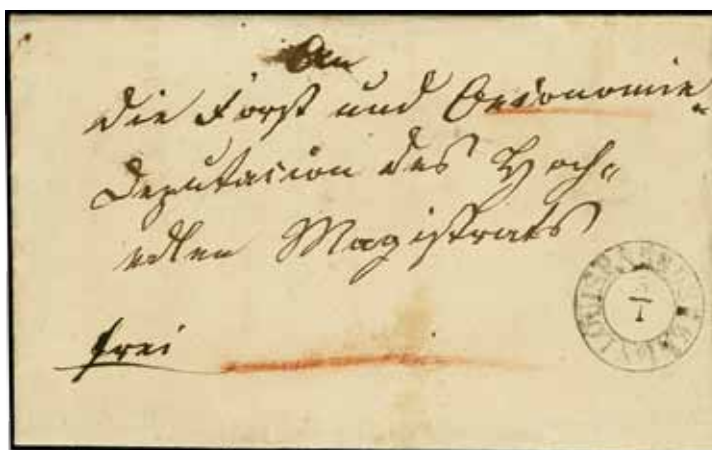 An
die Forst und Oeconomie-
Deputation des Hoch-
edlen Magistrats
frei